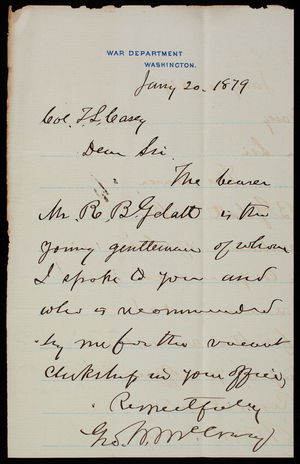 WAR DEPARTMENT
WASHINGTON.
Jany 20. 1879
Col. T. L. Casey
Dear Sir.
The bearer
Mr. R. B. Gelatt is the
young gentleman of whom
I spoke to you and
who is recommended
by me for the vacant
clerkship in your office,
Respectfully
Geo. W. McCrary